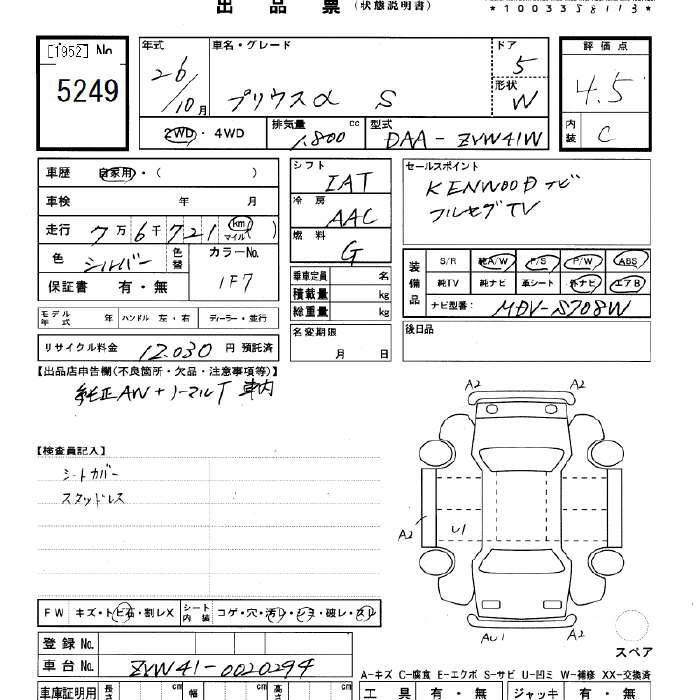 出品票(状態説明書)
*1003358113*
[1952] No
5249
年式 車名・グレード ドア 評価点
26/10月 プリウスα S 5 4.5
形状 W
2WD・4WD 排気量 1,800 cc 型式 DAA-ZVW41W 内装 C
車歴 自家用・( ) シフト IAT セールスポイント
車検 年 月 冷房 AAC KENWOODナビ
走行 7万6千721 km マイル ( ) 燃料 G フルセグTV
色 シルバー 色替 カラーNo. 1F7
保証書 有・無
乗車定員 名
積載量 kg
総重量 kg
装備品 S/R 純A/W P/S P/W ABS
純TV 純ナビ 革シート 外ナビ エアB
ナビ型番: MDV-S708W
モデル年式 年 ハンドル 左・右 ディーラー・並行 名変期限 月 日 後日品
リサイクル料金 12,030 円 預託済
【出品店申告欄(不良箇所・欠品・注意事項等)】
純正AW+ノーマルT 車内
A2 A2
【検査員記入】
シートカバー
スタッドレス
A2 U1 A2
FW キズ・トビ石・割レX シート内装 コゲ・穴・汚レ・シミ・破レ・スレ
AU1 A2
スペア
登録No.
車台No. ZVW41-0020294
A-キズ C-腐食 E-エクボ S-サビ U-凹ミ W-補修 XX-交換済
車庫証明用 長さ cm 幅 cm 高さ cm 工具 有・無 ジャッキ 有・無